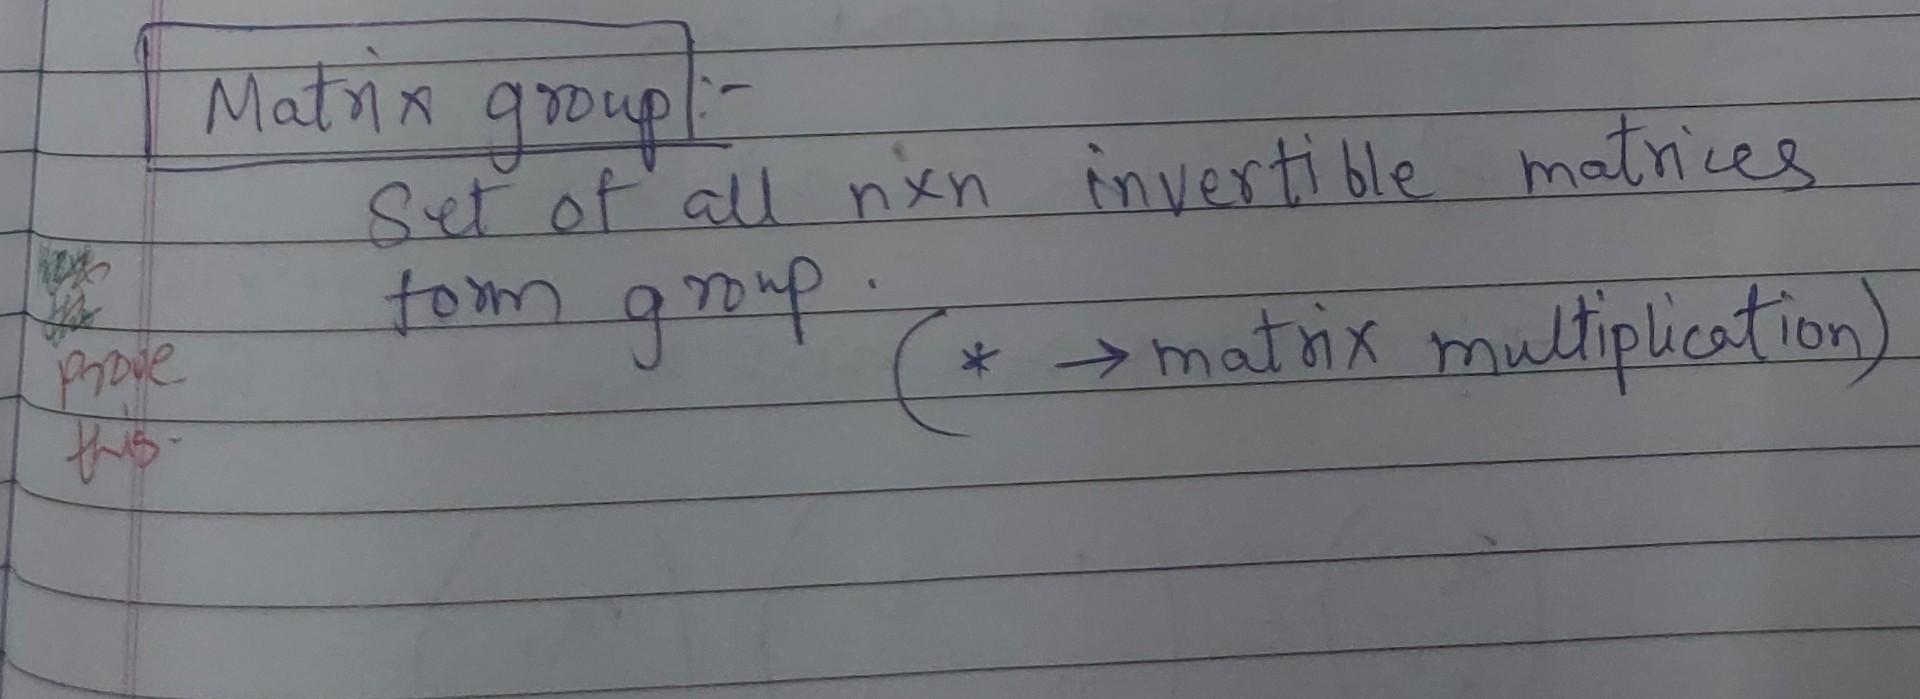 Matrix group :-
Set of all n×n invertible matrices
form group.
(* → matrix multiplication)
prove
this.